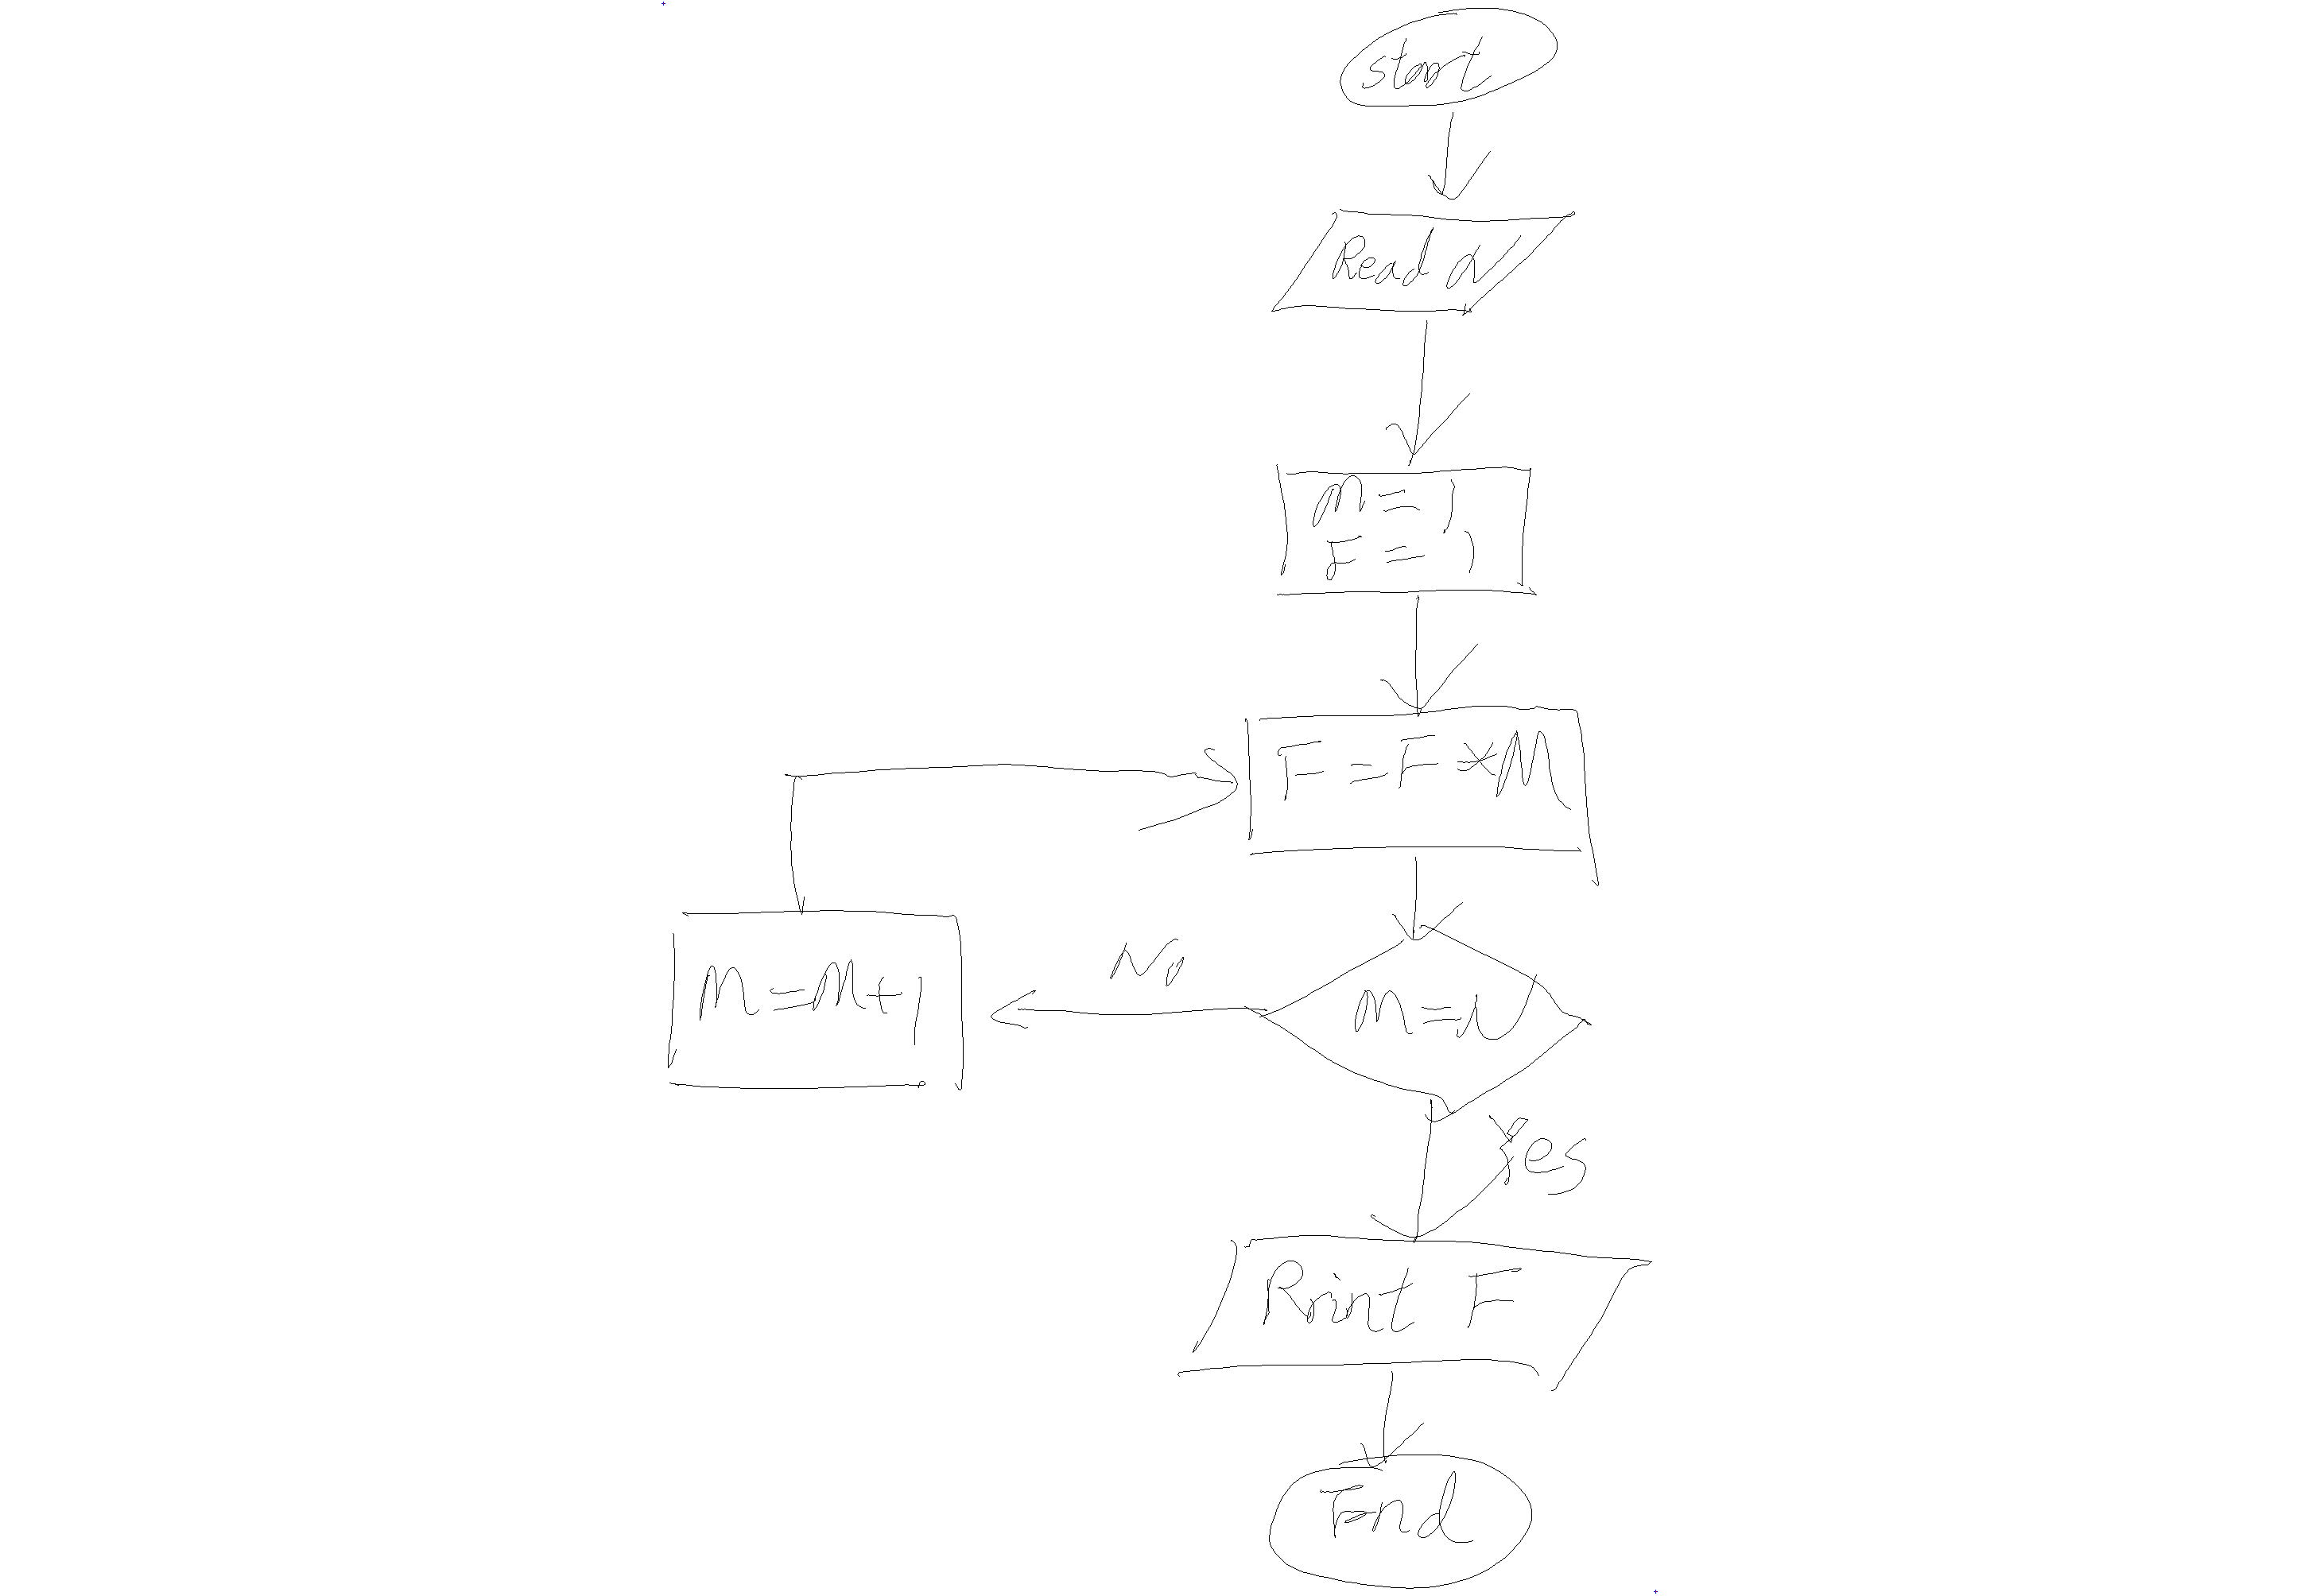 start
Read N
M = 1
F = 1
F = F * M
No
M = M + 1
M = N
Yes
Print F
End